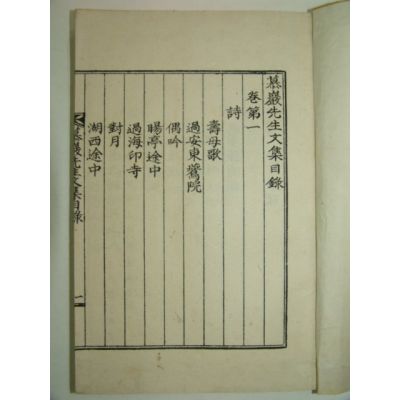 慕巖先生文集目錄
卷第一
詩
壽母歌
過安東鷰院
偶吟
暘亭途中
過海印寺
對月
湖西途中
慕巖先生文集目錄
一